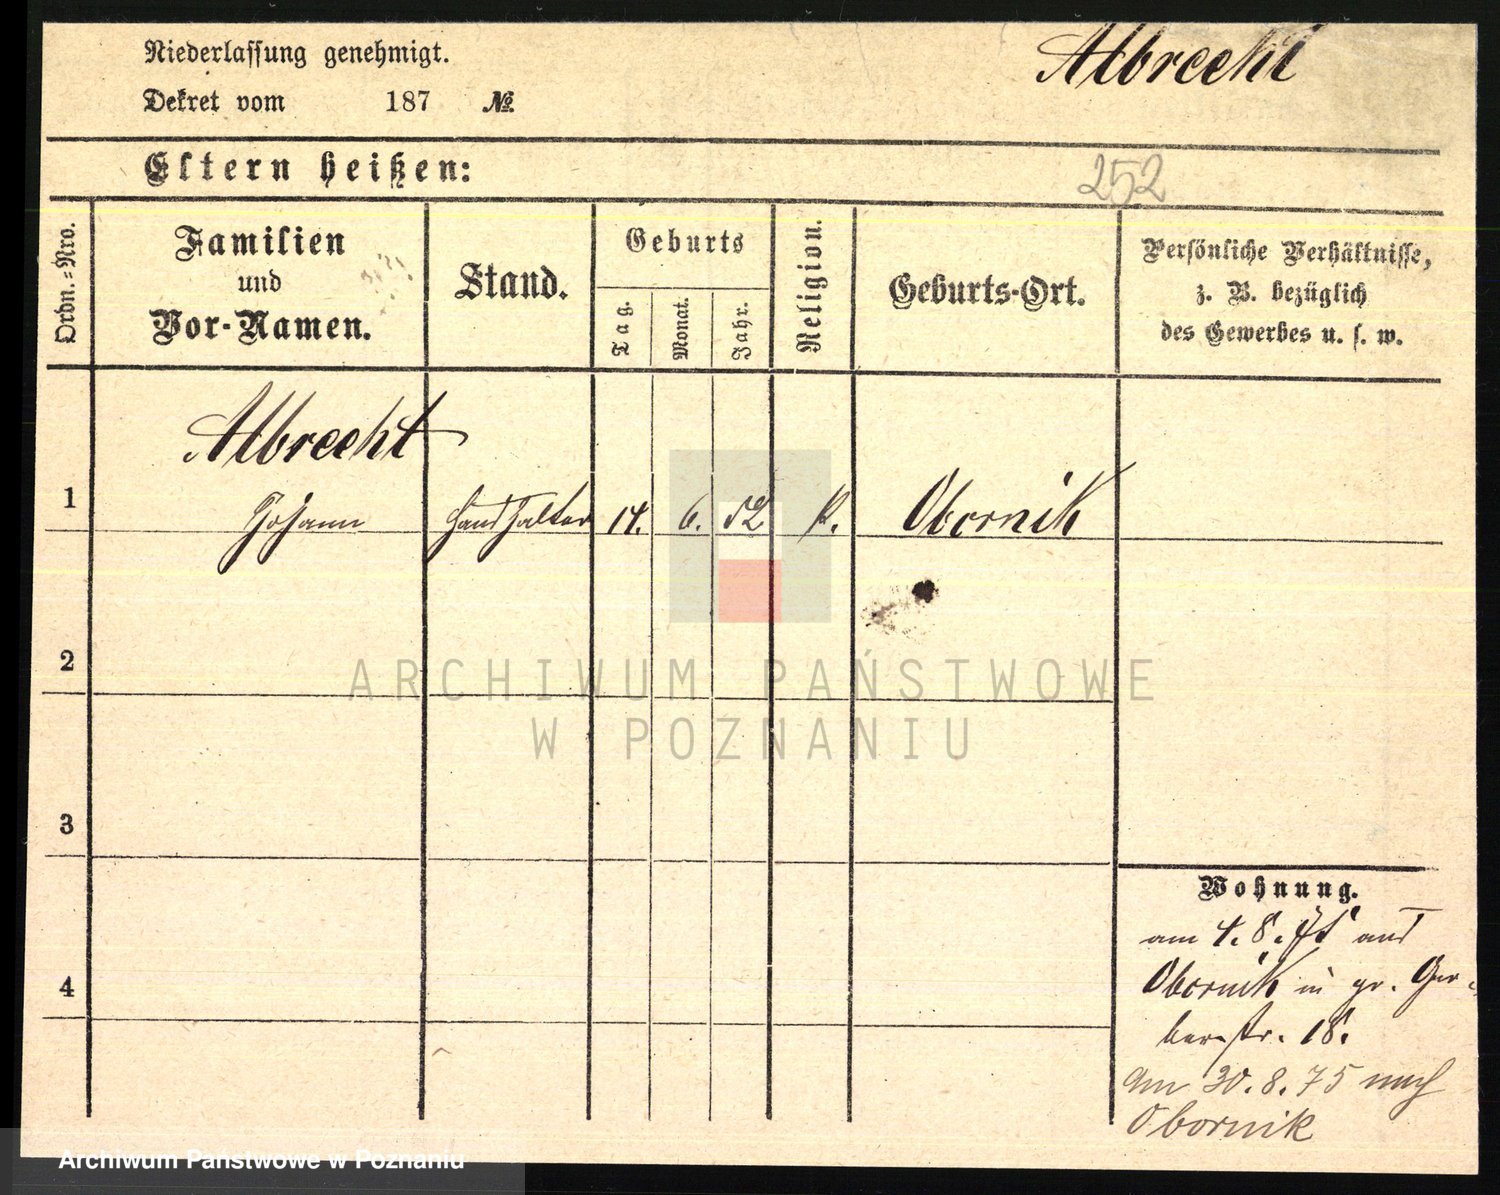 Niederlassung genehmigt.
Dekret vom 187 №
Albrecht
Eltern heißen:
252
Ordn.=Nro.
Familien
und
Vor-Namen.
Stand.
Geburts
Tag.
Monat.
Jahr.
Religion.
Geburts-Ort.
Persönliche Verhältnisse,
z. B. bezüglich
des Gewerbes u. s. w.
Albrecht
1 Johann Haushalter 14. 6. 52 k. Obornik
2
ARCHIWUM PAŃSTWOWE
W POZNANIU
3
4
Wohnung.
am 4. 8. 75 aus
Obornik in gr. Ger-
berstr. 18.
am 30. 8. 75 nach
Obornik
Archiwum Państwowe w Poznaniu